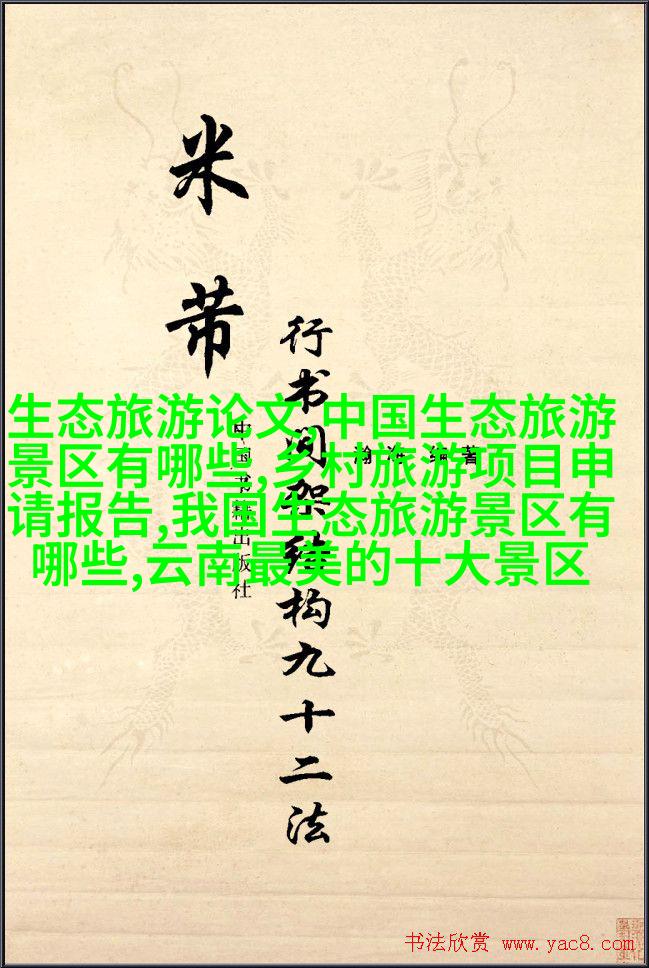 米
芾
行书间架结构九十二法
瀚海 编著
中国书籍出版社
生态旅游论文,中国生态旅游
景区有哪些,乡村旅游项目申
请报告,我国生态旅游景区有
哪些,云南最美的十大景区
书法欣赏 www.yac8.com